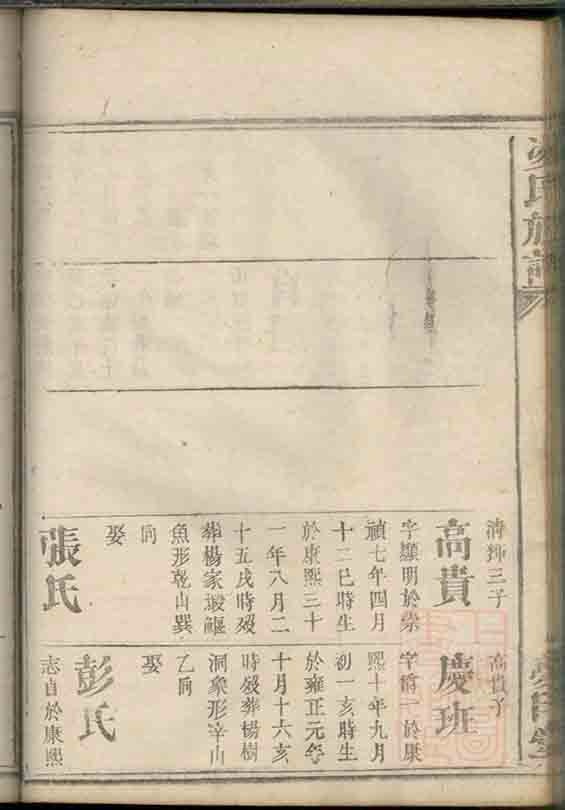 氏族譜
清揮三子
高貴
字顯明於崇
禎七年四月
十二巳時生
於康熙三十
一年八月二
十五戌時歿
葬楊家塅鱷
魚形乾山巽
向
娶
張氏
高貴子
慶班
字爵一於康
熙十年九月
初一亥時生
於雍正元年
十月十六亥
時歿葬楊樹
洞象形辛山
乙向
娶
彭氏
志自於康熙